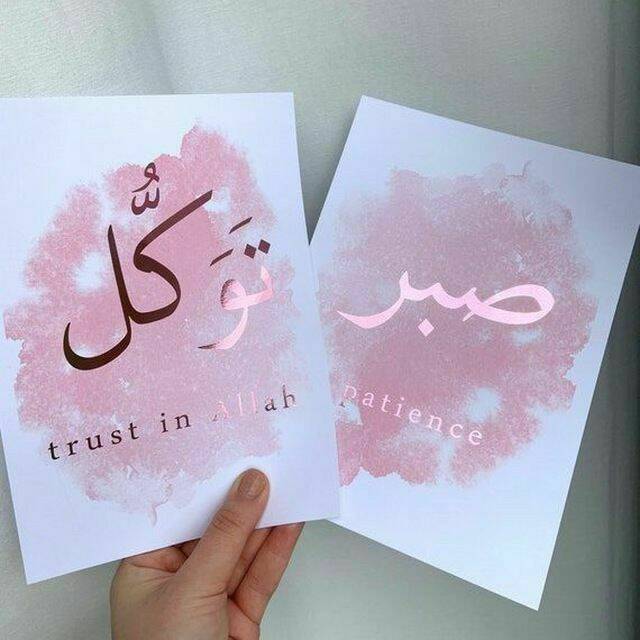 تَوَكُّل
trust in Allah
صبر
patience